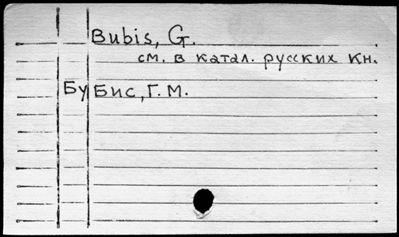 Bubis, G.
см. в катал. русских кн.
Бу Бис, Г. М.